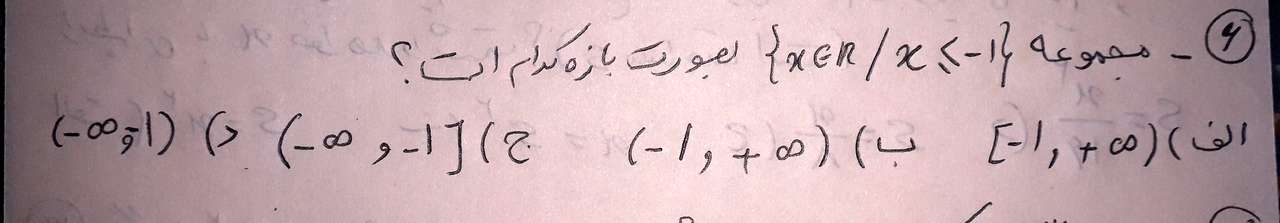 ۴ - مجموعه {x∈R / x ≤ -1} بصورت بازه کدام است؟
الف) [-1, +∞) ب) (-1, +∞) ج) (-∞, -1] د) (-∞, -1)